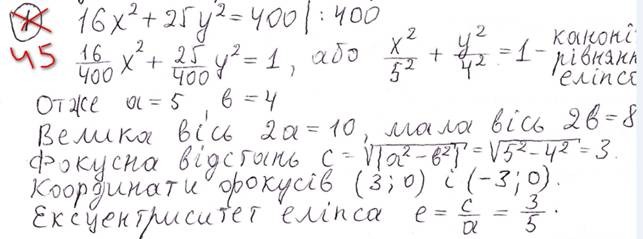 1 16x² + 25y² = 400 | : 400
45 16/400 x² + 25/400 y² = 1, або x²/5² + y²/4² = 1 - каноні
рівнян
еліпся
Отже a = 5, b = 4
Велика вісь 2a = 10, мала вісь 2b = 8
Фокусна відстань c = √|a² - b²| = √5² - 4² = 3.
Координати фокусів (3; 0) і (-3; 0).
Ексцентриситет еліпса e = c/a = 3/5.